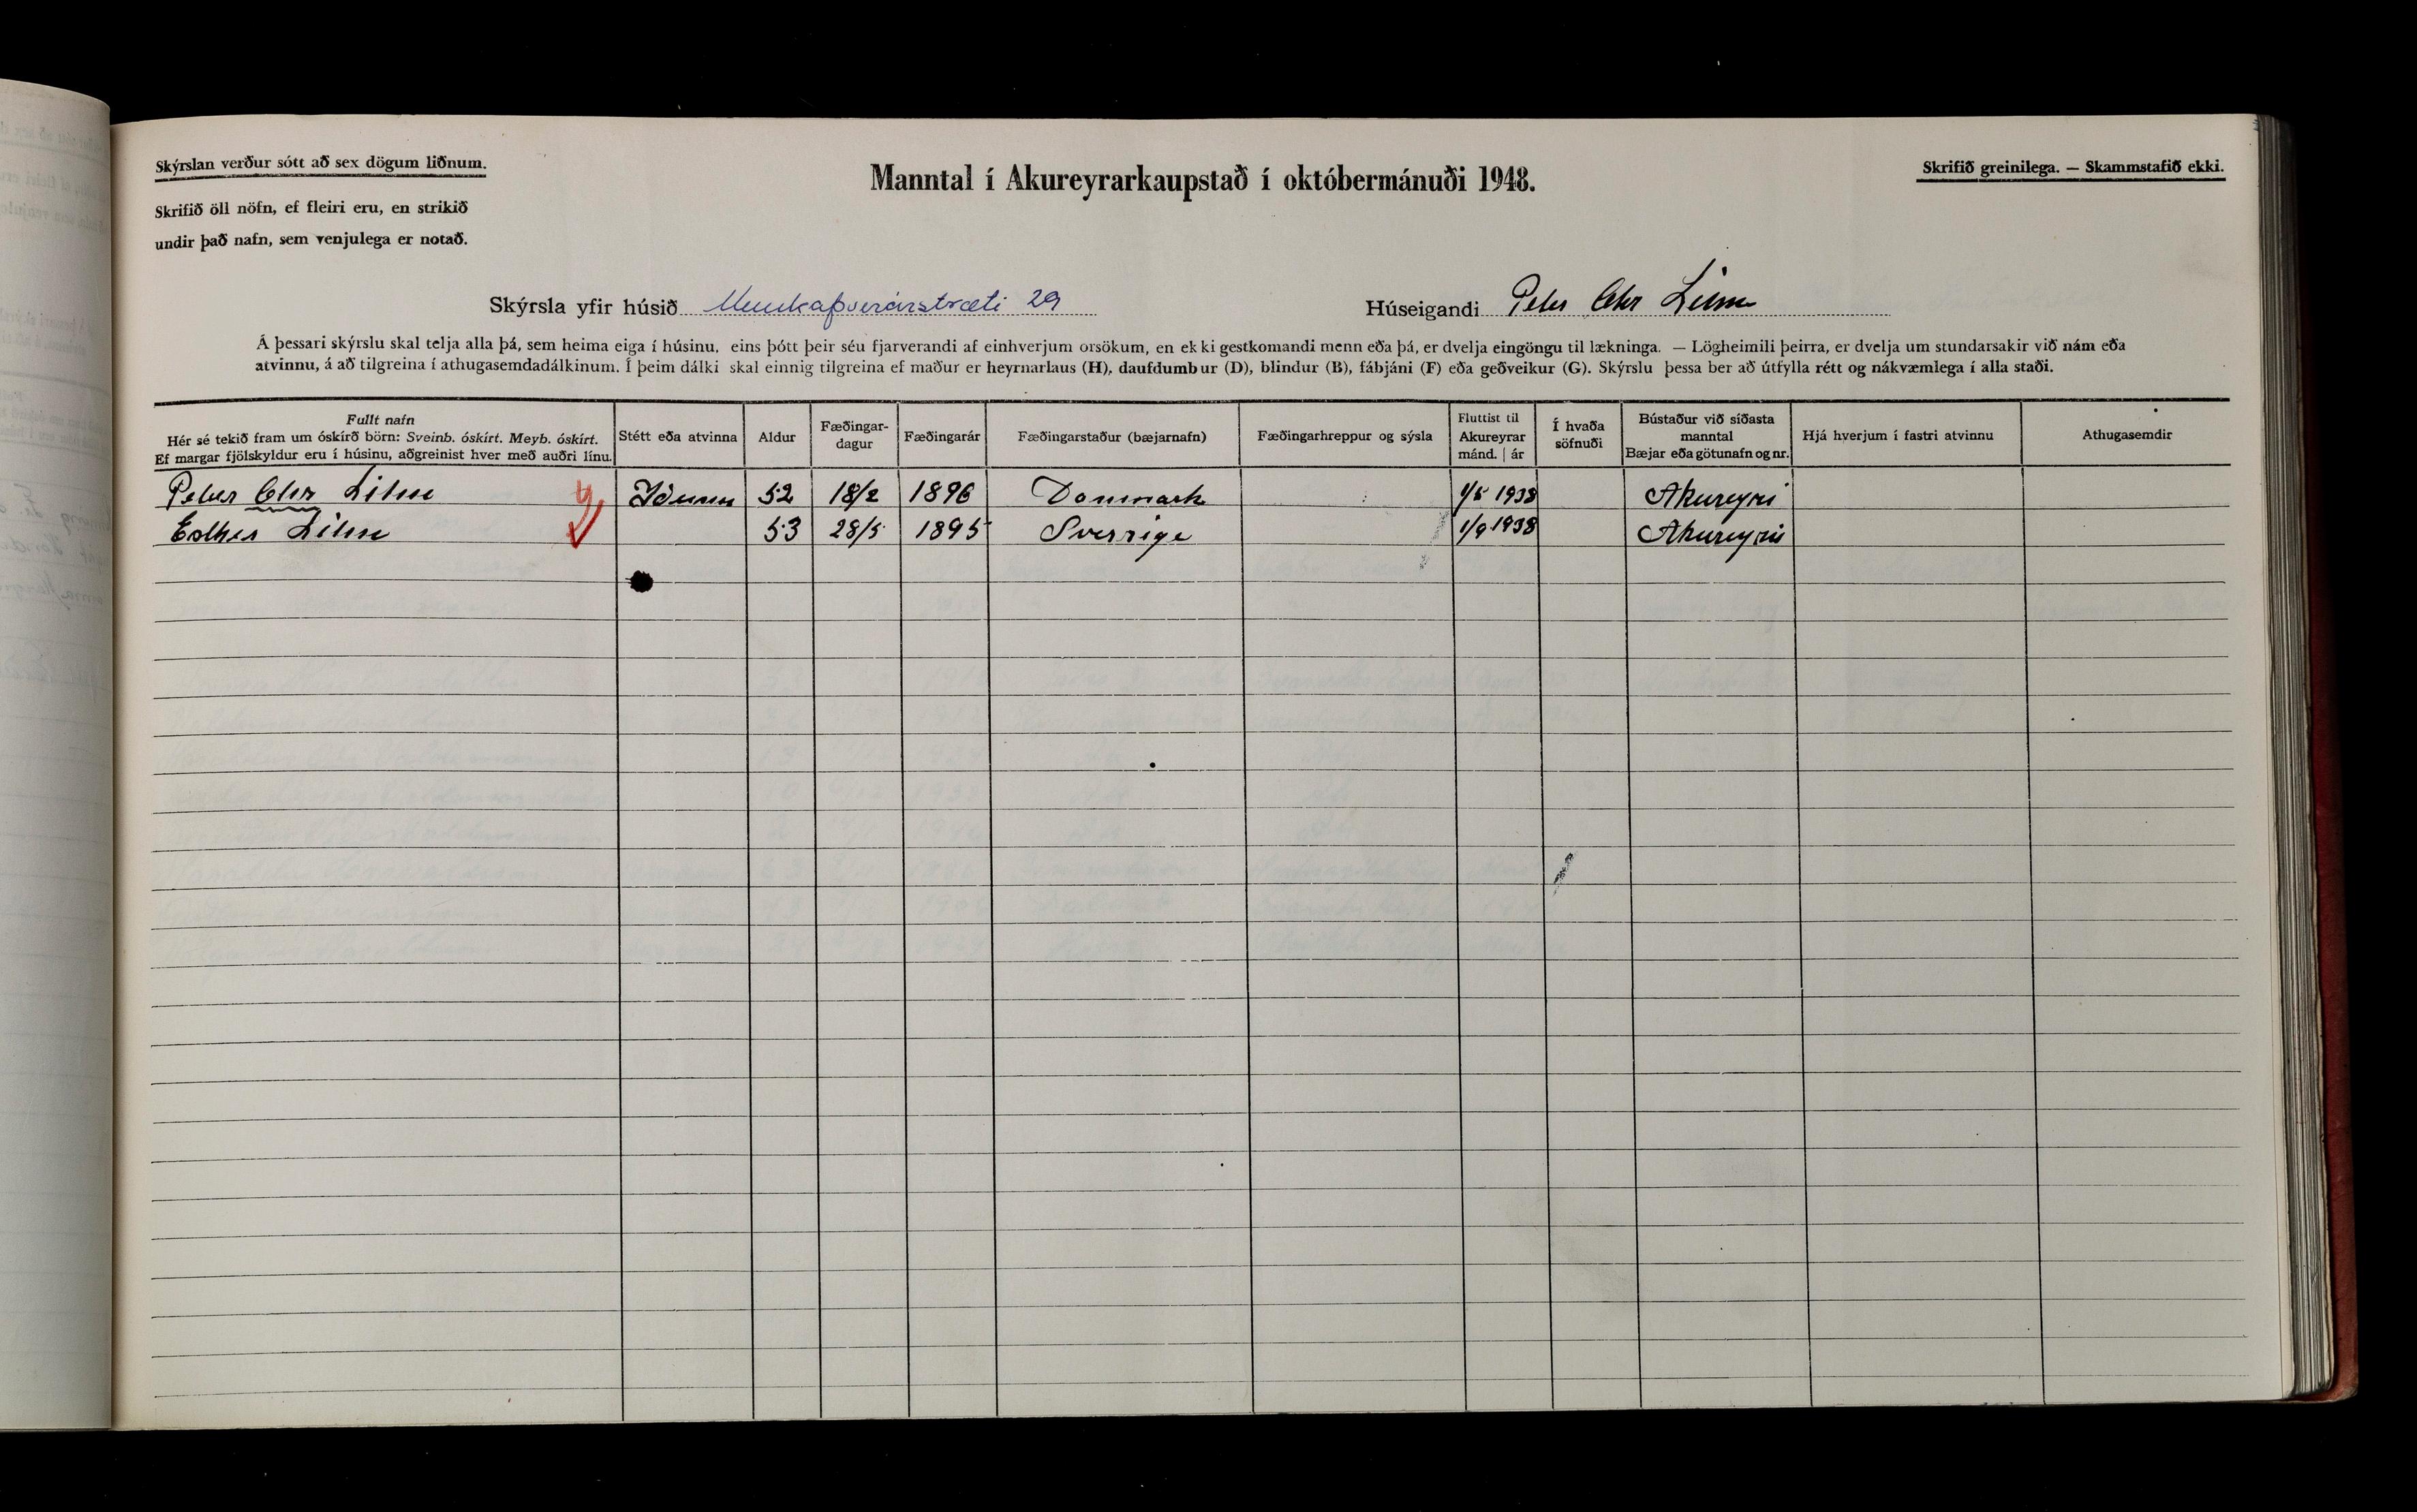 Skýrslan verður sótt að sex dögum liðnum.
Skrifið öll nöfn, ef fleiri eru, en strikið
undir það nafn, sem venjulega er notað.
Manntal í Akureyrarkaupstað í októbermánuði 1948.
Skrifið greinilega. — Skammstafið ekki.
Skýrsla yfir húsið Munkaþverárstræti 29
Húseigandi Peter Chr Lihn
Á þessari skýrslu skal telja alla þá, sem heima eiga í húsinu, eins þótt þeir séu fjarverandi af einhverjum orsökum, en ekki gestkomandi menn eða þá, er dvelja eingöngu til lækninga. — Lögheimili þeirra, er dvelja um stundarsakir við nám eða
atvinnu, á að tilgreina í athugasemdadálkinum. Í þeim dálki skal einnig tilgreina ef maður er heyrnarlaus (H), daufdumbur (D), blindur (B), fábjáni (F) eða geðveikur (G). Skýrslu þessa ber að útfylla rétt og nákvæmlega í alla staði.
Fullt nafn
Hér sé tekið fram um óskírð börn: Sveinb. óskírt. Meyb. óskírt.
Ef margar fjölskyldur eru í húsinu, aðgreinist hver með auðri línu.
Stétt eða atvinna
Aldur
Fæðingar-
dagur
Fæðingarár
Fæðingarstaður (bæjarnafn)
Fæðingarhreppur og sýsla
Fluttist til
Akureyrar
mánd. | ár
Í hvaða
söfnuði
Bústaður við síðasta
manntal
Bæjar eða götunafn og nr.
Hjá hverjum í fastri atvinnu
Athugasemdir
Peter Chr Lihn Iðunn 52 18/2 1896 Danmark 1/5 1938 Akureyri
Esther Lihn 53 28/5 1895 Sverrige 1/9 1938 Akureyri